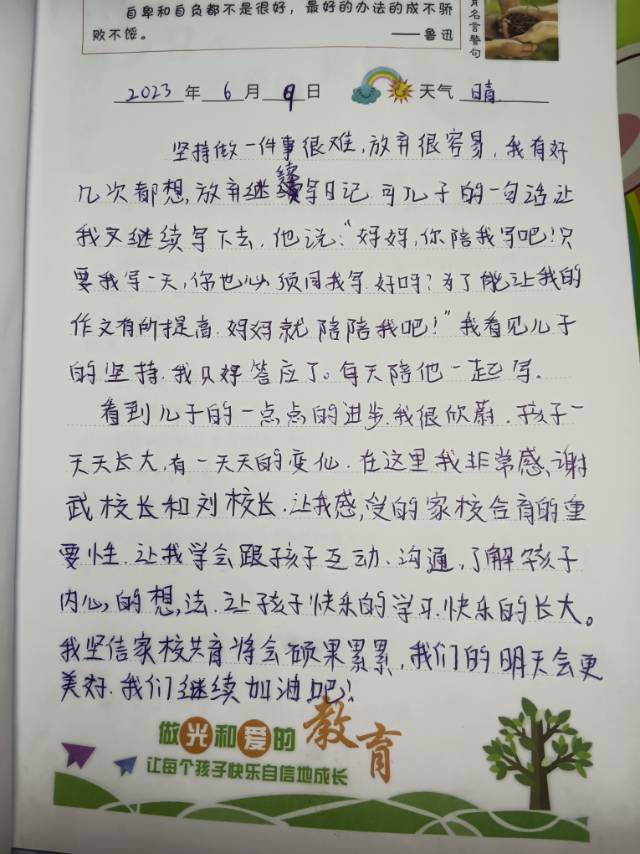 自卑和自负都不是很好，最好的办法的成不骄
败不馁。
——鲁迅
名言警句
2023年6月9日 天气 晴
坚持做一件事很难，放弃很容易，我有好
几次都想，放弃继续写日记.可儿子的一句话让
我又继续写下去，他说："妈妈，你陪我写吧！只
要我写一天，你也必须同我写.好吗？为了能让我的
作文有所提高.妈妈就陪陪我吧！"我看见儿子
的坚持.我只好答应了。每天陪他一起写.
看到儿子的一点点的进步.我很欣蔚.孩子一
天天长大，有一天天的变化.在这里我非常感谢
武校长和刘校长.让我感受的家校合育的重
要性.让我学会跟孩子互动、沟通，了解孩子
内心的想法.让孩子快乐的学习.快乐的长大。
我坚信家校共育将会硕果累累，我们的明天会更
美好.我们继续加油吧！
做光和爱的教育
让每个孩子快乐自信地成长